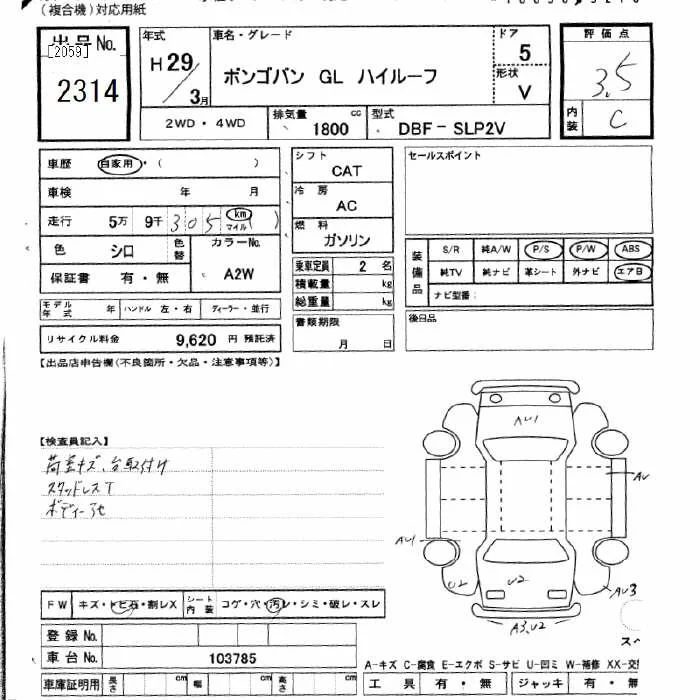 (複合機)対応用紙
出品No.
[2059]
2314
年式
H29/3月
車名・グレード
ボンゴバン GL ハイルーフ
ドア
5
形状
V
2WD・4WD
排気量
1800 cc
型式
DBF-SLP2V
評価点
3.5
内装
C
車歴 自家用・( )
車検 年 月
走行 5万 9千 305 km マイル ( )
色 シロ 色替
カラーNo.
A2W
保証書 有・無
モデル年式 年 ハンドル 左・右 ディーラー・並行
リサイクル料金 9,620 円 預託済
シフト
CAT
冷房
AC
燃料
ガソリン
乗車定員 2 名
積載量 kg
総重量 kg
書類期限
月 日
セールスポイント
装備品
S/R 純A/W P/S P/W ABS
純TV 純ナビ 革シート 外ナビ エアB
ナビ型番:
後日品
【出品店申告欄(不良箇所・欠品・注意事項等)】
【検査員記入】
荷室キズ、台取付け
スタッドレスT
AU1
AU
AU1
U2
U2
AU3
A3,U2
FW キズ・トビ石・割レX
シート内装 コゲ・穴・汚レ・シミ・破レ・スレ
登録No.
車台No. 103785
車庫証明用 長さ cm 幅 cm 高さ cm
スペ
A-キズ C-腐食 E-エクボ S-サビ U-凹ミ W-補修 XX-交
工具 有・無 ジャッキ 有・無